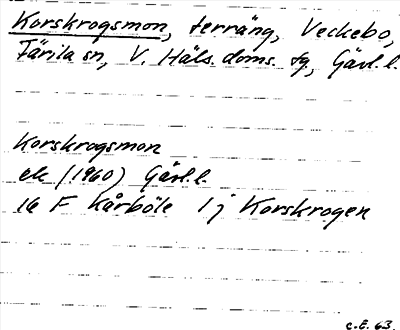 Korskrogsmon, terräng, Veckebo,
Färila sn, V. Häls. doms. tg, Gävl.l.
Korskrogsmon
ek (1960) Gävl.l.
16 F Kårböle 1 j Korskrogen
C.E. 63.